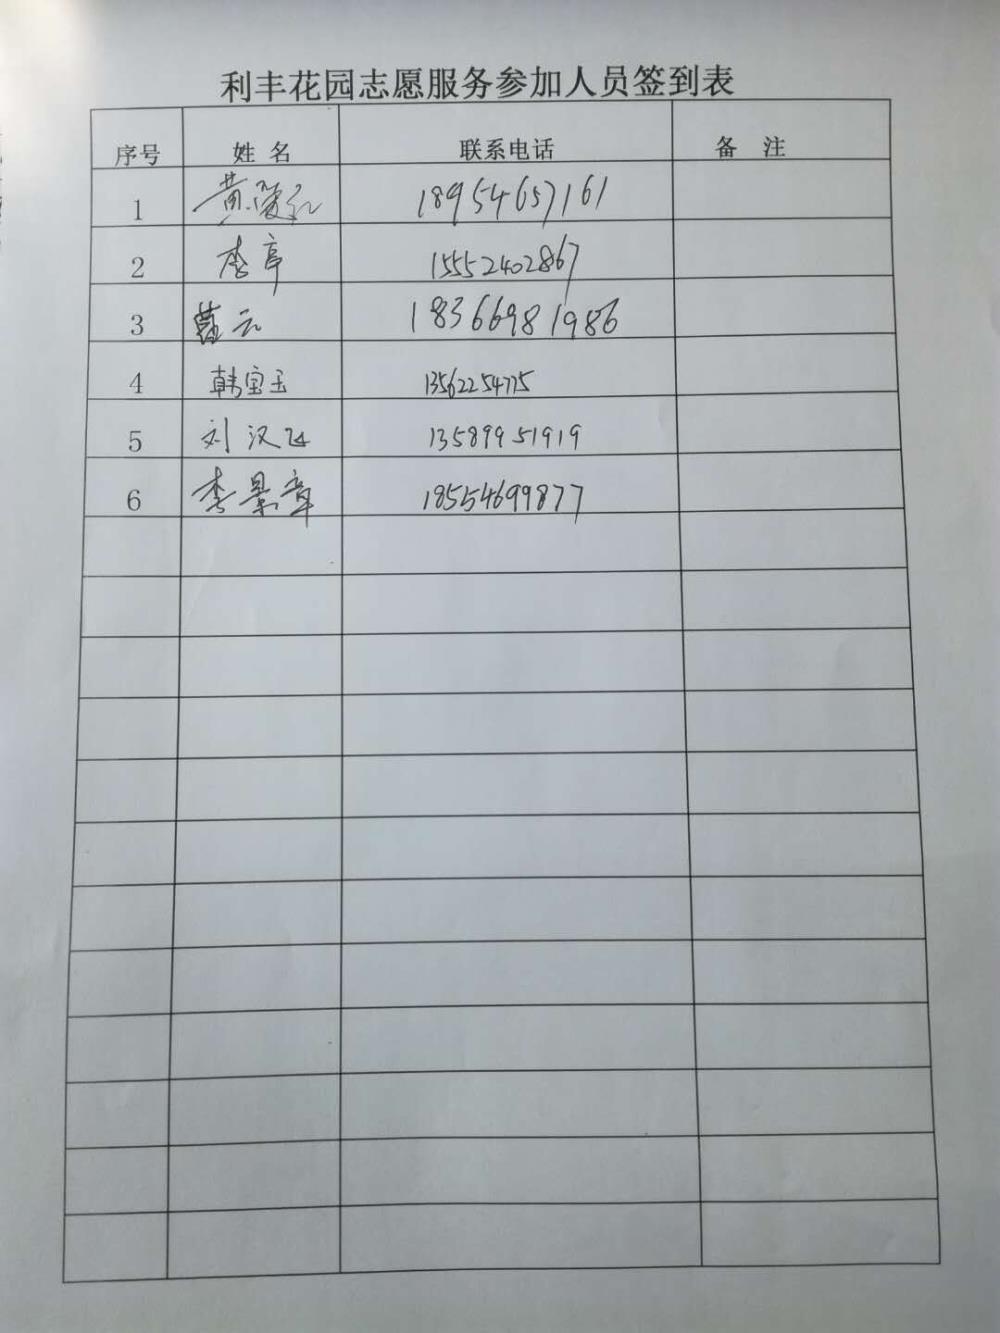 利丰花园志愿服务参加人员签到表
序号 姓名 联系电话 备注
1 黄 18954657161
2 李章 15552402867
3 云 18366981986
4 韩宝玉 13562254775
5 刘汉飞 13589951919
6 李景章 18554699877